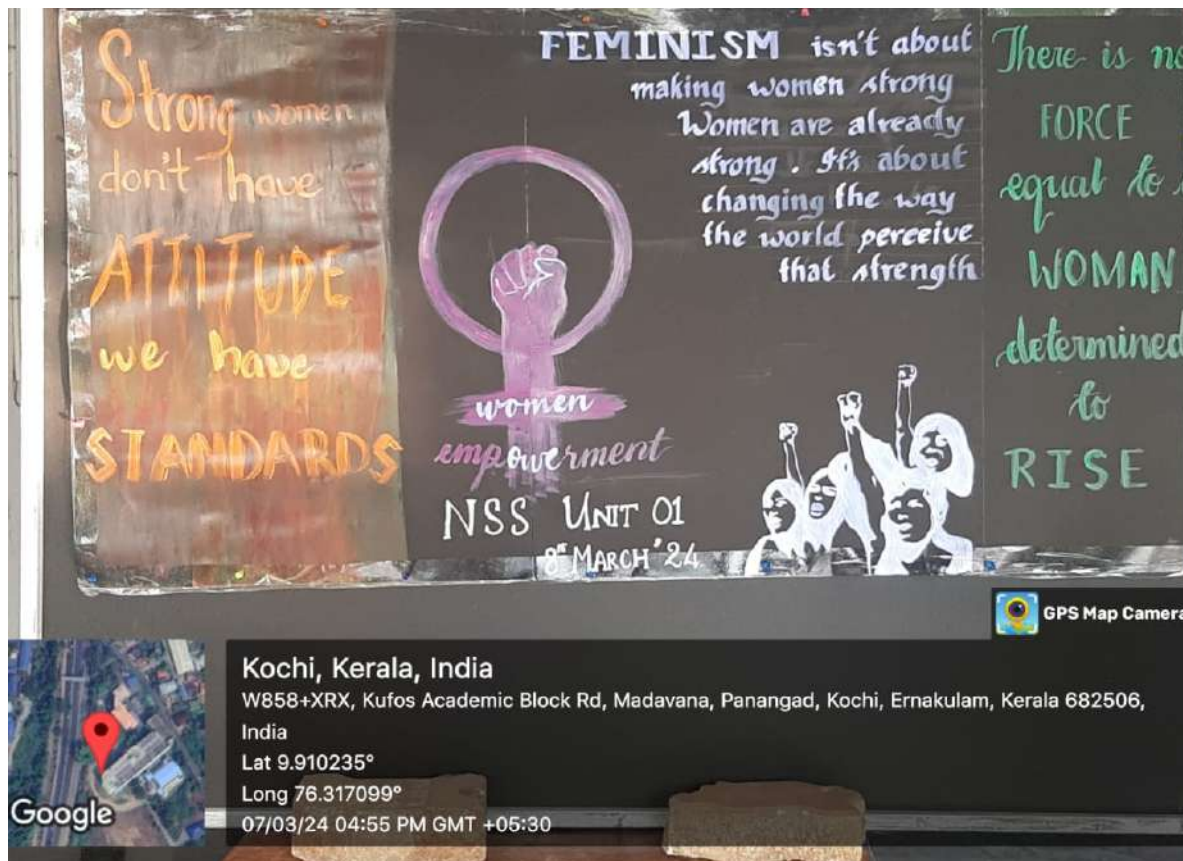 Strong women
don't have
ATTITUDE
we have
STANDARDS
FEMINISM isn't about
making women strong
Women are already
strong. It's about
changing the way
the world perceive
that strength
women
empowerment
NSS UNIT 01
8th MARCH '24
There is no
FORCE
equal to
WOMAN
determined
to
RISE
GPS Map Camera
Kochi, Kerala, India
W858+XRX, Kufos Academic Block Rd, Madavana, Panangad, Kochi, Ernakulam, Kerala 682506,
India
Lat 9.910235°
Long 76.317099°
07/03/24 04:55 PM GMT +05:30
Google